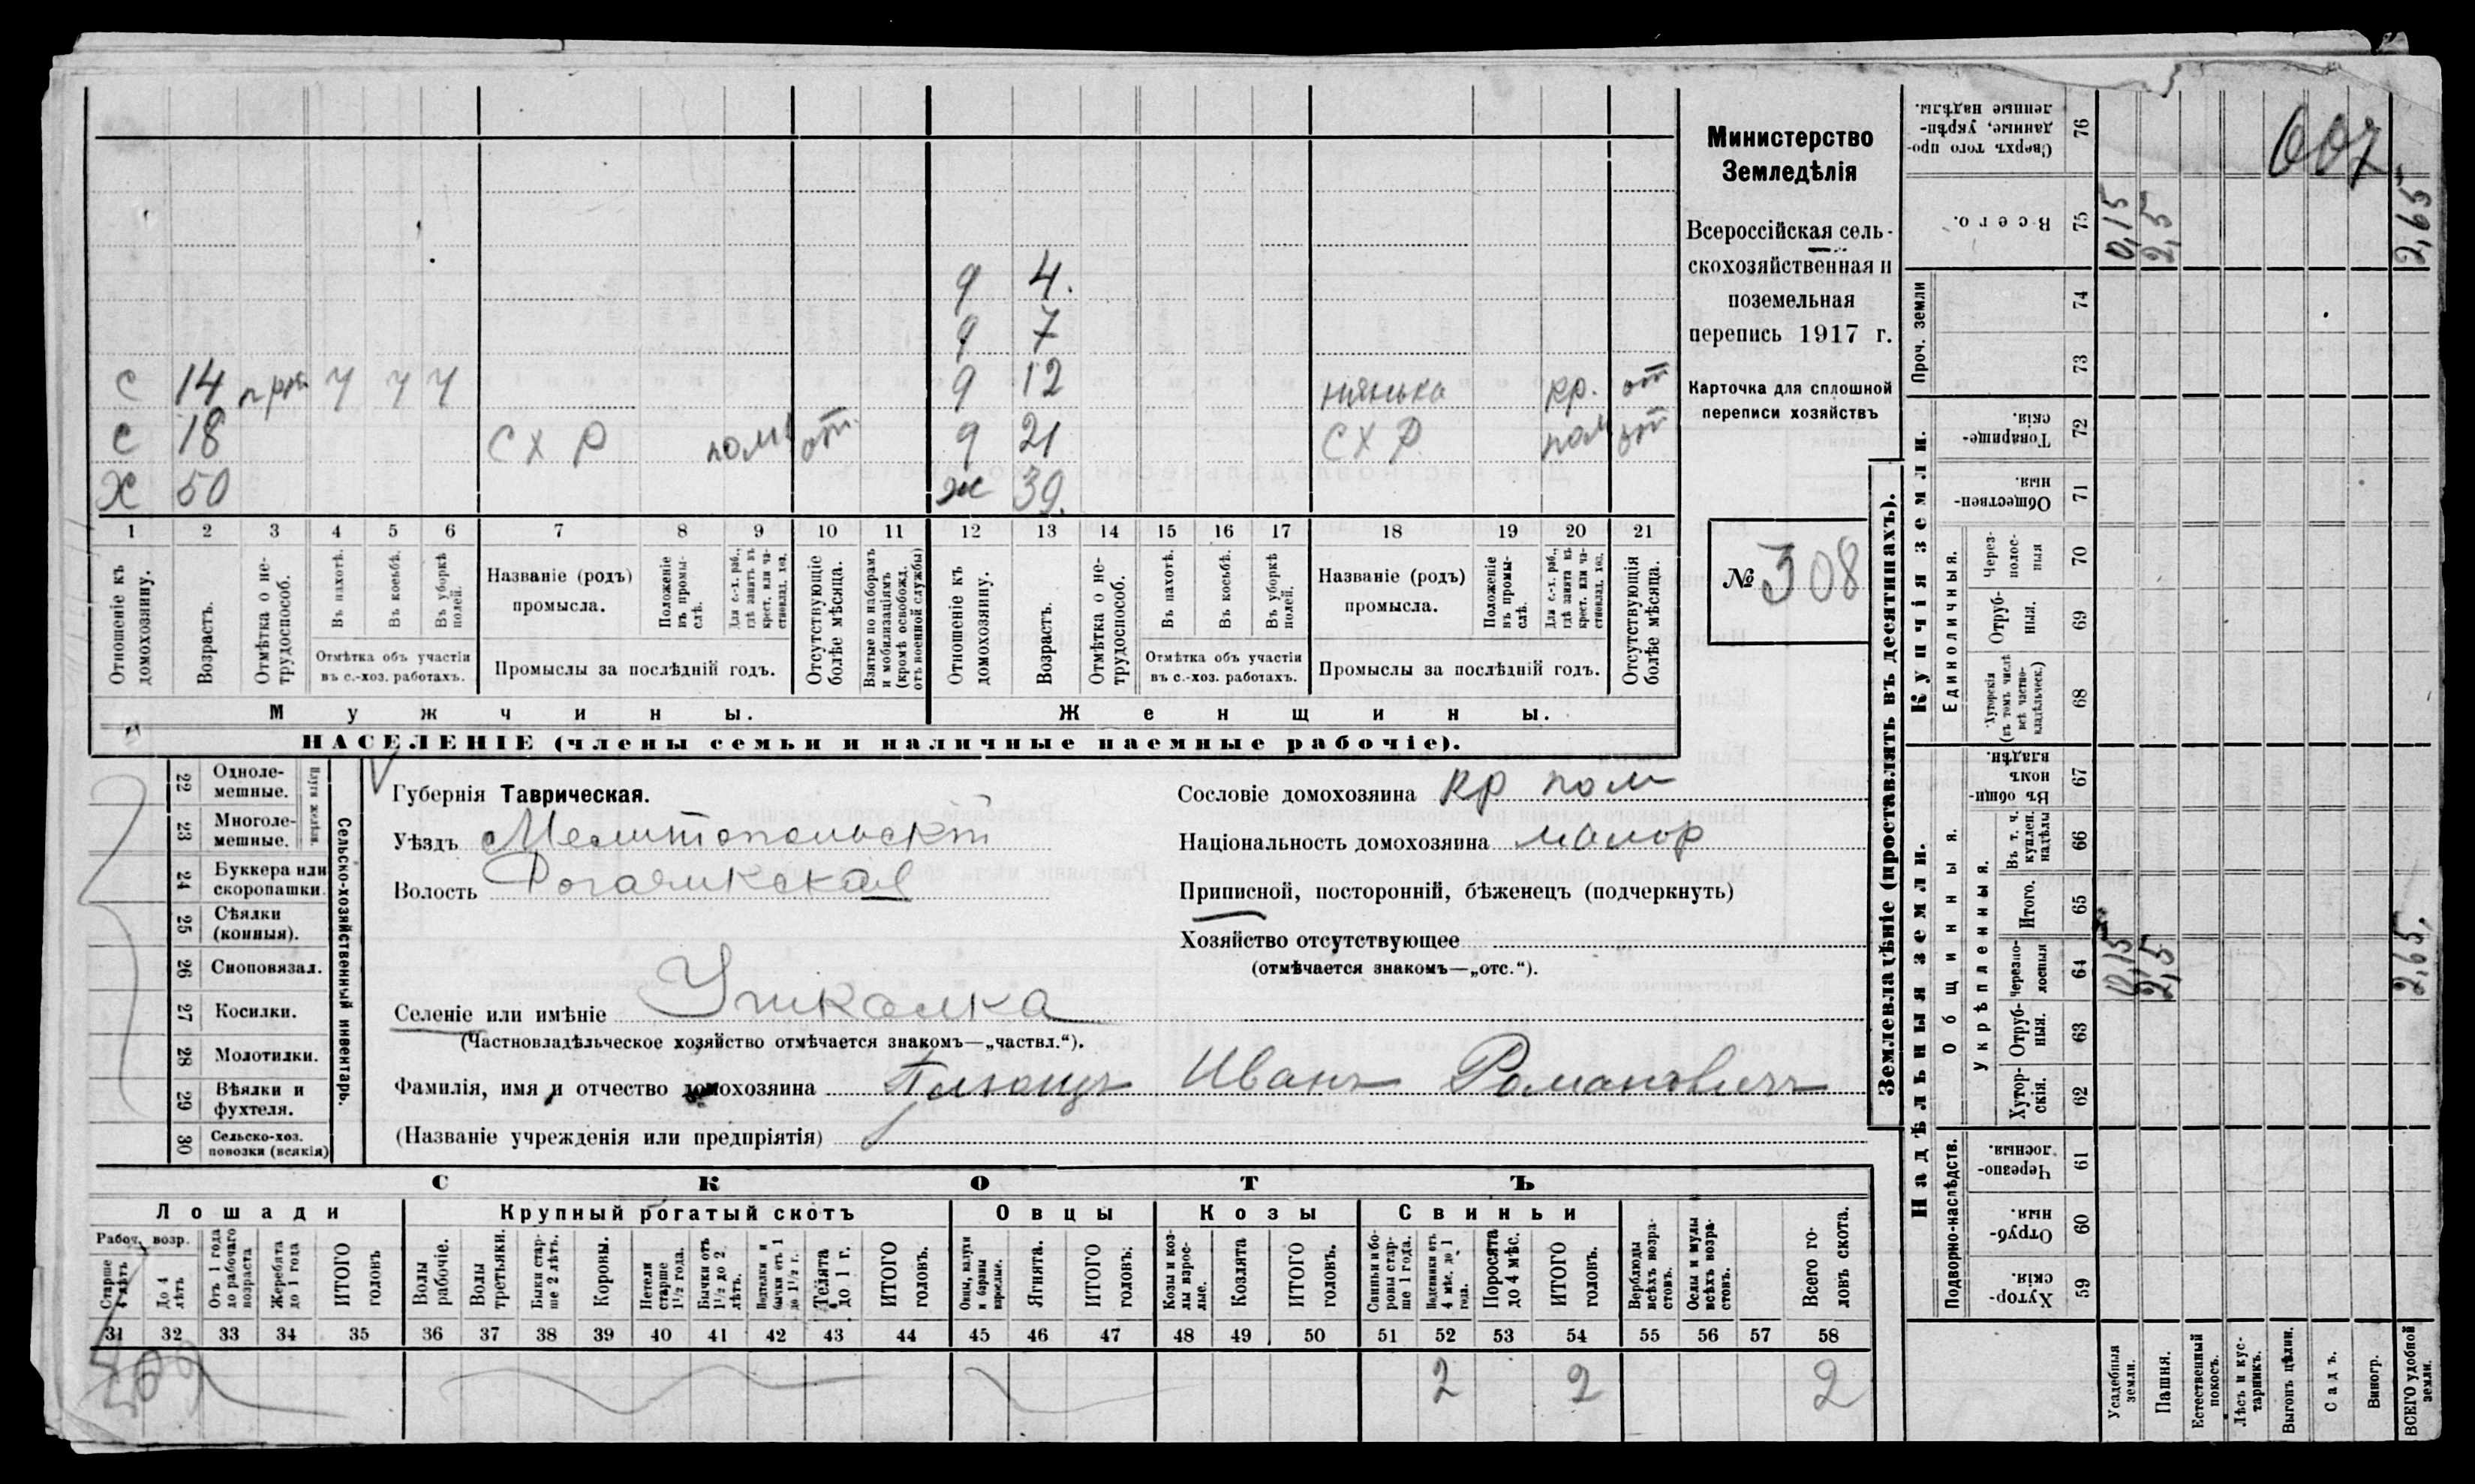 9 4.
9 7
с 14 ч ч ч 9 12 нянька кр. от
с 18 С Х Р пом от. 9 21 С Х Р. пом от
Х 50 ж 39.
1 2 3 4 5 6 7 8 9 10 11 12 13 14 15 16 17 18 19 20 21
Отношеніе къ домохозяину.
Возрастъ.
Отмѣтка о не-трудоспособ.
Въ пахотѣ.
Въ косьбѣ.
Въ уборкѣ полей.
Отмѣтка объ участіи
въ с.-хоз. работахъ.
Названіе (родъ)
промысла.
Положеніе въ промы-слѣ.
Для с.-х. раб., гдѣ занятъ въ крест. или ча-стновлад. хоз.
Промыслы за послѣдній годъ.
Отсутствующіе болѣе мѣсяца.
Взятые по наборамъ и мобилизаціямъ (кромѣ освобожд. отъ военной службы)
Отношеніе къ домохозяину.
Возрастъ.
Отмѣтка о не-трудоспособ.
Въ пахотѣ.
Въ косьбѣ.
Въ уборкѣ полей.
Отмѣтка объ участіи
въ с.-хоз. работахъ.
Названіе (родъ)
промысла.
Положеніе въ промы-слѣ.
Для с.-х. раб., гдѣ занята въ крест. или ча-стновлад. хоз.
Промыслы за послѣдній годъ.
Отсутствующія болѣе мѣсяца.
Мужчины. Женщины.
НАСЕЛЕНІЕ (члены семьи и наличные наемные рабочіе).
Министерство
Земледѣлія
Всероссійская сель-
скохозяйственная и
поземельная
перепись 1917 г.
Карточка для сплошной
переписи хозяйствъ
№ 308
22 Одноле-мешные.
23 Многоле-мешные.
24 Буккера или скоропашки.
25 Сѣялки (конныя).
26 Сноповязал.
27 Косилки.
28 Молотилки.
29 Вѣялки и фухтеля.
30 Сельско-хоз. повозки (всякія)
Сельско-хозяйственный инвентарь.
Губернія Таврическая.
Уѣздъ
Волость Рогачикская
Селеніе или имѣніе
(Частновладѣльческое хозяйство отмѣчается знакомъ—„частвл.“).
Фамилія, имя и отчество домохозяина Иванъ Романовичъ
(Названіе учрежденія или предпріятія)
Сословіе домохозяина кр пом
Національность домохозяина малор
Приписной, посторонній, бѣженецъ (подчеркнуть)
Хозяйство отсутствующее
(отмѣчается знакомъ—„отс.“).
СКОТЪ
Лошади Крупный рогатый скотъ Овцы Козы Свиньи
Рабоч. возр.
Старше 4 лѣтъ
До 4 лѣтъ
Отъ 1 года до рабочаго возраста
Жеребята до 1 года
ИТОГО головъ
Волы рабочіе.
Волы третьяки.
Быки стар-ше 2 лѣтъ.
Коровы.
Нетели старше 1½ года.
Бычки отъ 1½ до 2 лѣтъ.
Подтелки и бычки отъ 1 до 1½ г.
Телята до 1 г.
ИТОГО головъ.
Овцы, валухи и бараны взрослые.
Ягнята.
ИТОГО головъ.
Козы и коз-лы взрос-лые.
Козлята
ИТОГО головъ.
Свиньи и бо-ровы стар-ше 1 года.
Подсвинки отъ 4 мѣс. до 1 года.
Поросята до 4 мѣс.
ИТОГО головъ.
Верблюды всѣхъ возра-стовъ.
Ослы и мулы всѣхъ возра-стовъ.
Всего го-ловъ скота.
31 32 33 34 35 36 37 38 39 40 41 42 43 44 45 46 47 48 49 50 51 52 53 54 55 56 57 58
2 2 2
Землевладѣніе (проставлять въ десятинахъ).
Надѣльныя земли. Купчія земли. Проч. земли
Подворно-наслѣдств. Общинныя. Укрѣпленныя. Единоличныя.
Хутор-скія. 59
Отруб-ныя. 60
Черезпо-лосныя. 61
Хутор-скія. 62
Отруб-ныя. 63
Черезпо-лосныя 64
Итого. 65
Въ т. ч. куплен. надѣлы 66
Въ общи-номъ владѣн. 67
Хуторскія (въ томъ числѣ всѣ частно-владѣльческ.) 68
Отруб-ныя. 69
Через-полос-ныя 70
Обществен-ныя. 71
Товарище-скія. 72
73
74
Всего. 75
Сверхъ того про-данные, укрѣп-ленные надѣлы. 76
Усадебныя земли. 0,15 0,15
Пашня. 2,5 2,5
Естественный покосъ.
Лѣсъ и кус-тарникъ.
Выгонъ цѣлин.
Садъ.
Виногр.
ВСЕГО удобной земли. 2,65. 2,65
007